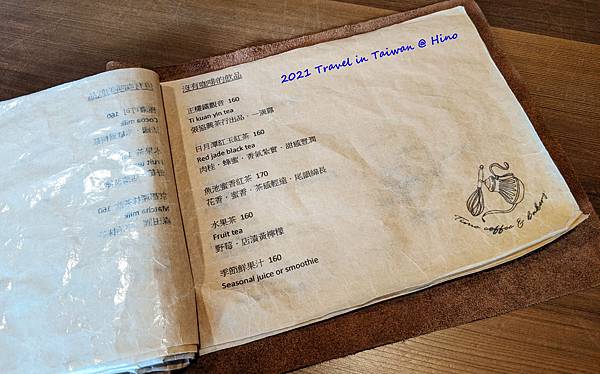 2021 Travel in Taiwan @ Hino
沒有咖啡的飲品
正欉鐵觀音 160
Ti kuan yin tea
張協興茶行出品．一演露
日月潭紅玉紅茶 160
Red jade black tea
肉桂．蜂蜜．香氣紮實．甜感豐潤
魚池蜜香紅茶 170
花香．蜜香．茶感輕遠．尾韻綿長
水果茶 160
Fruit tea
野莓．店漬黃檸檬
季節鮮果汁 160
Seasonal juice or smoothie
coffee & bakery
160
Cocoa milk
160
Fruit
160
Matcha milk